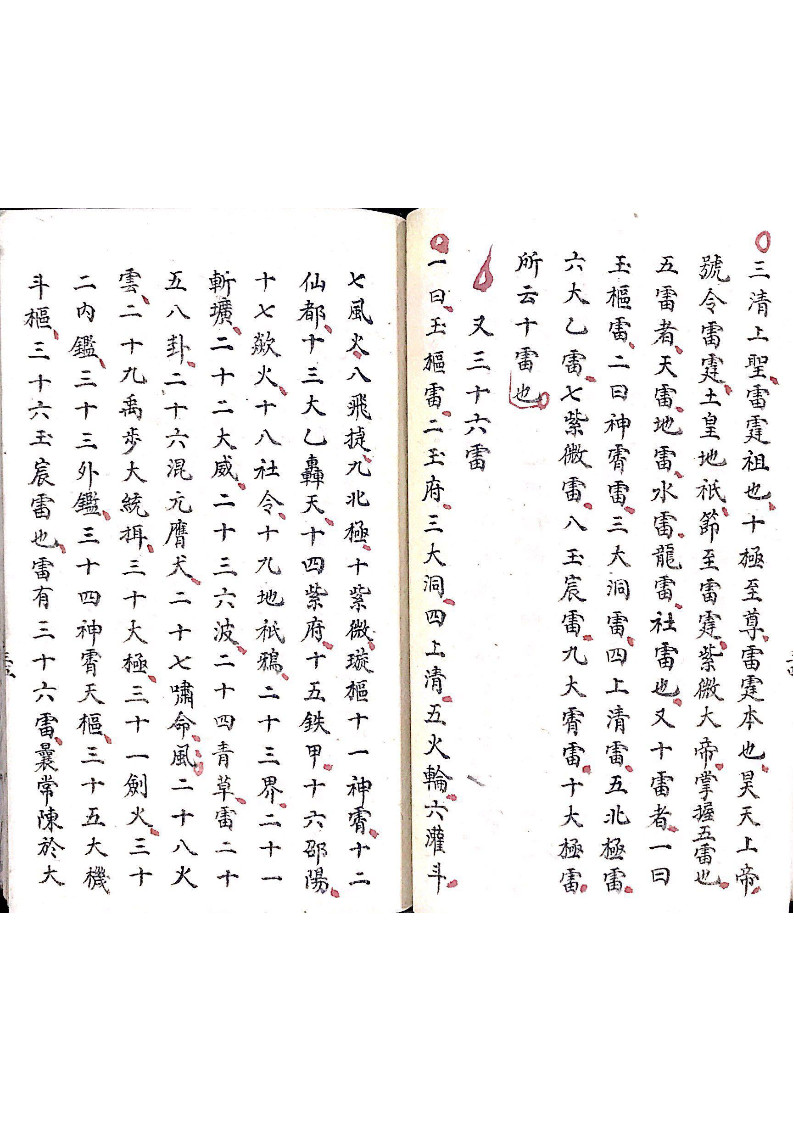 三清上聖雷霆祖也十極至尊雷霆本也昊天上帝
號令雷霆土皇地祇節至雷霆紫微大帝掌握五雷也
五雷者天雷地雷水雷龍雷社雷也又十雷者一曰
玉樞雷二曰神霄雷三大洞雷四上清雷五北極雷
六大乙雷七紫微雷八玉宸雷九大霄雷十大極雷
所云十雷也
又三十六雷
一曰玉樞雷二玉府三大洞四上清五火輪六灌斗
七風火八飛捷九北極十紫微璇樞十一神霄十二
仙都十三大乙轟天十四紫府十五鉄甲十六邵陽
十七歘火十八社令十九地祇鴉二十三界二十一
斬壙二十二大威二十三六波二十四青草雷二十
五八卦二十六混元鷹犬二十七嘯命風二十八火
雲二十九禹步大統挕三十大極三十一劍火三十
二内鑑三十三外鑑三十四神霄天樞三十五大機
斗樞三十六玉宸雷也雷有三十六雷曩常陳於大